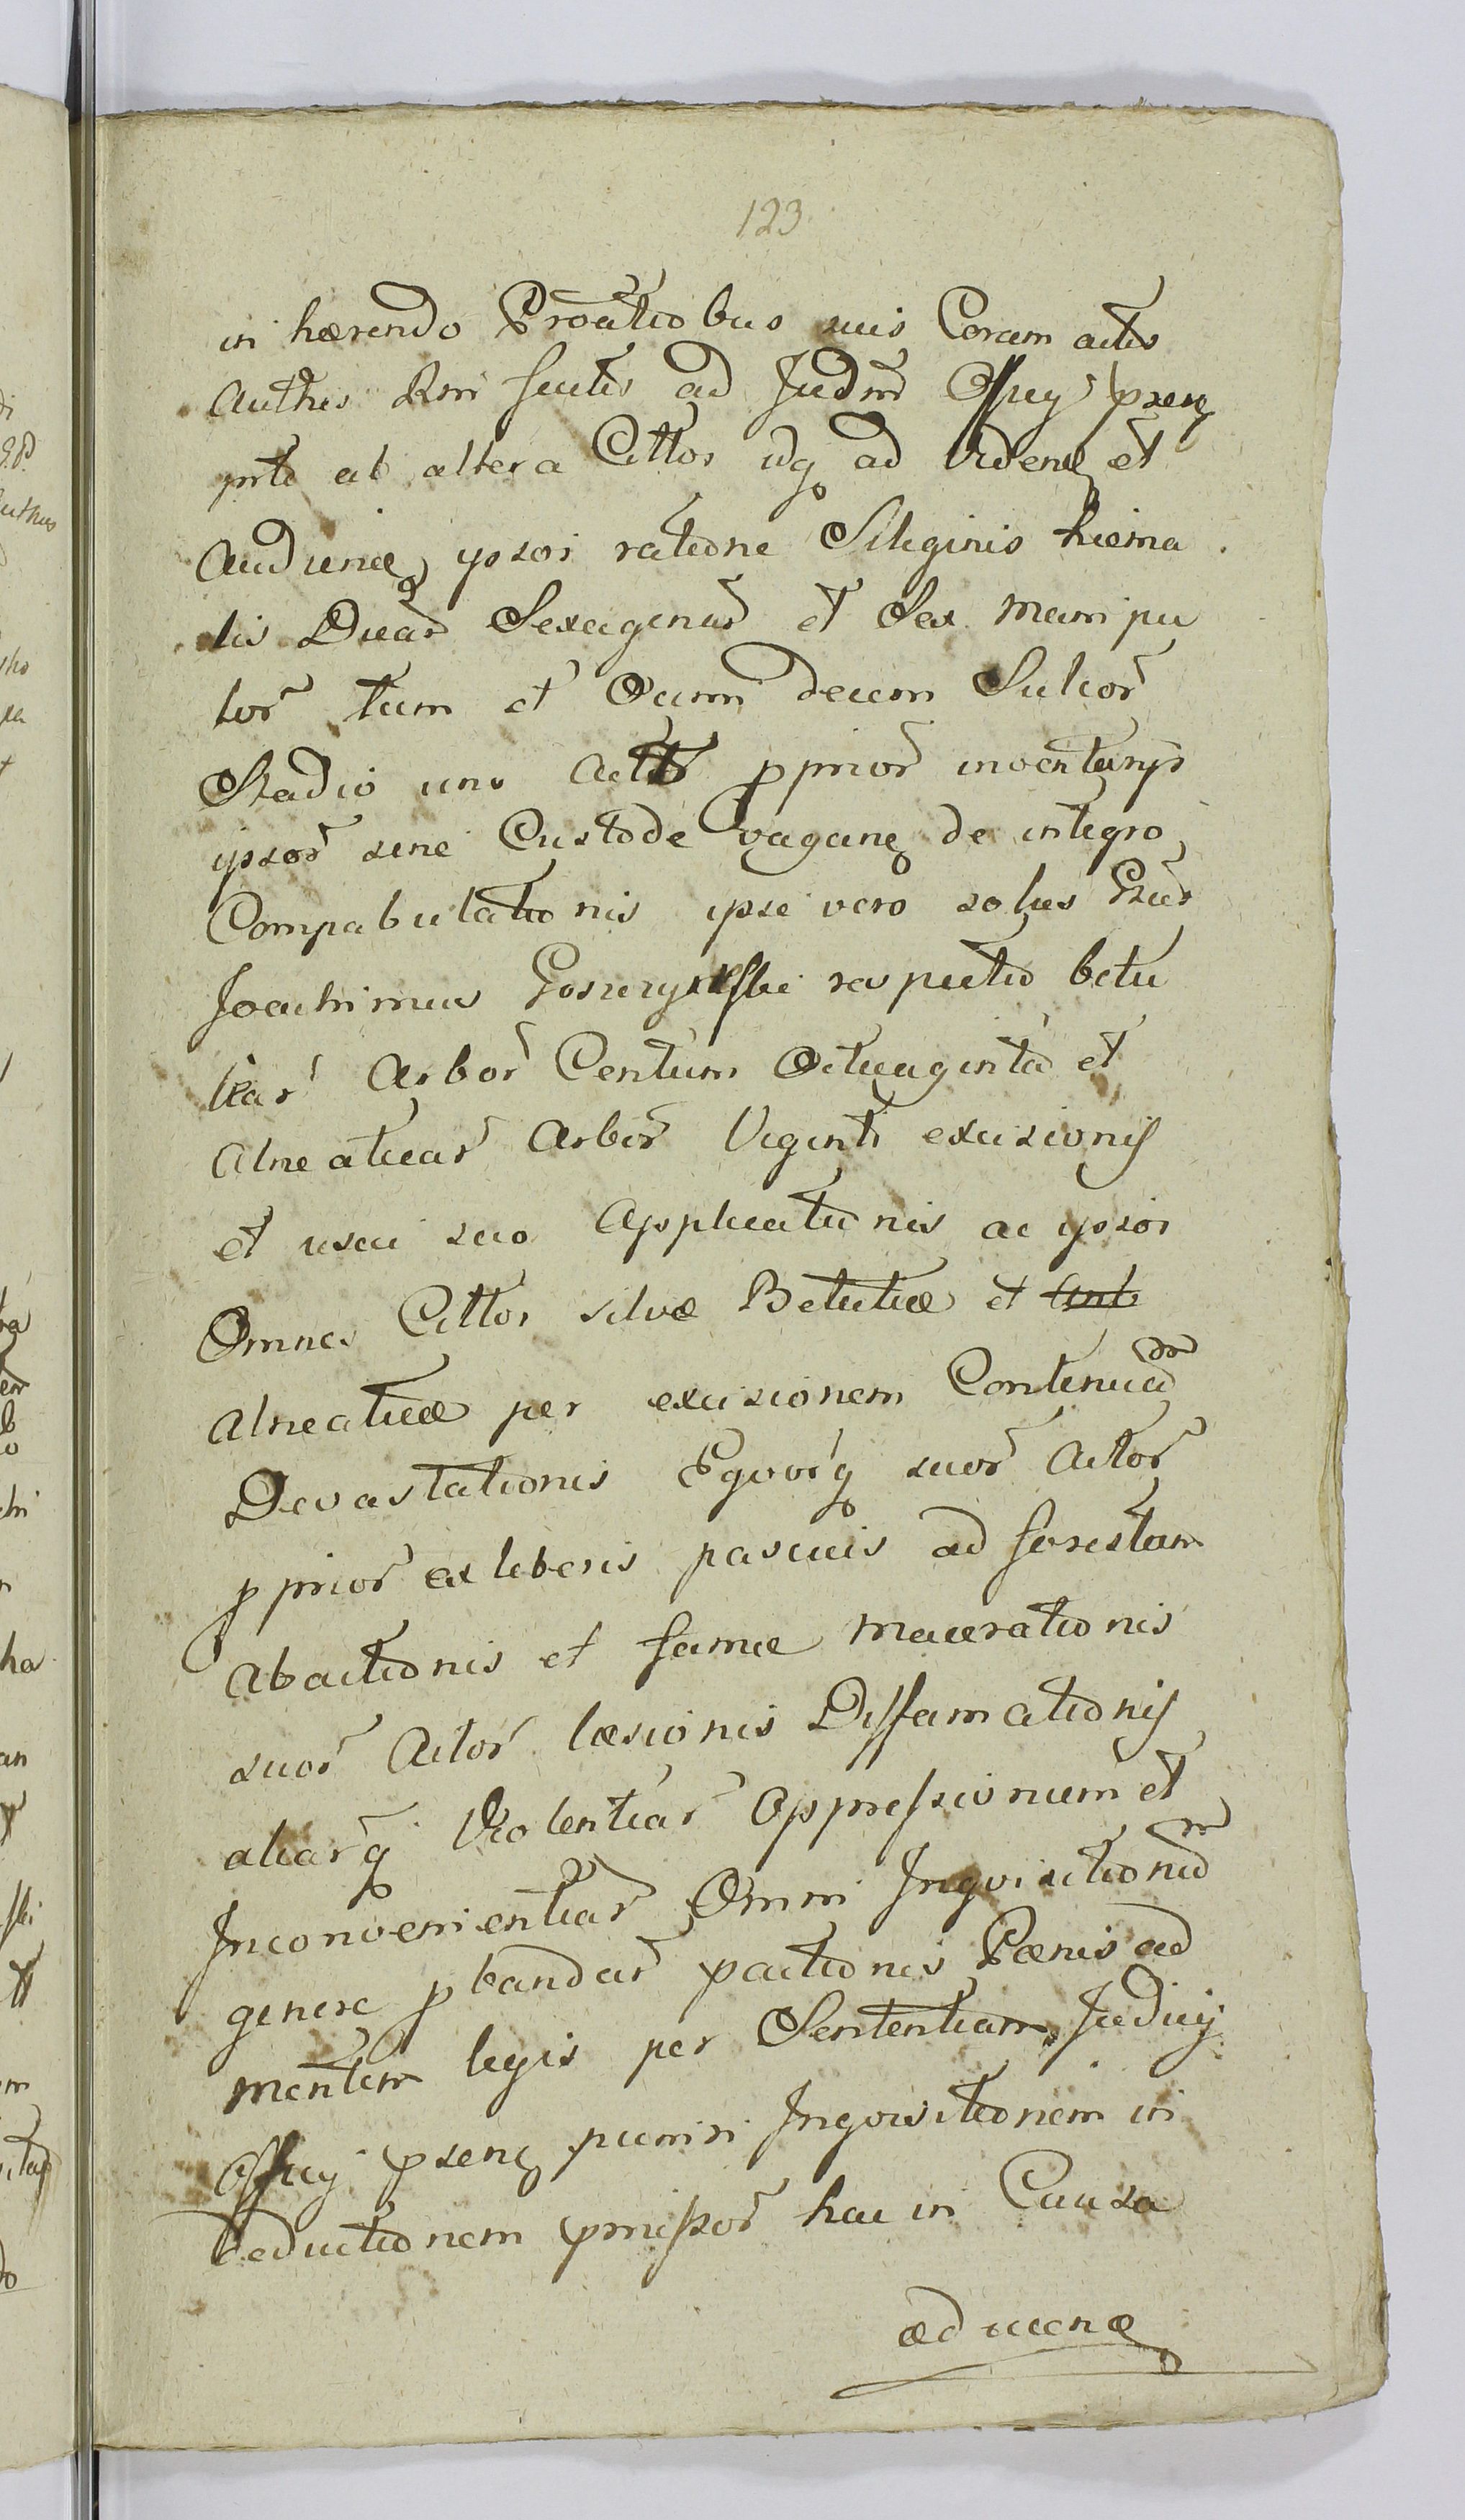 123
in hærendo Proâtiobus suis Coram actis
Authcis Rmi factis ad Judm̃ Offcÿ pseng
prte ab altera Cittos idq ad Videnđ et
Audienđ ipsos ratione Siliginis hiema
lis Duar̃ Sexagenar̃ et Sex Manipu
lor̃ tum et Avenæ decem Sulcor̃
Stadio uno Actor̃ pprior̃ inventarijs
ipsor̃ sine Custode vagang de integro
Compabulationis ipse vero solus Gsus
Joachimus respectu betu
lear̃ Arbor̃ Centum Octuaginta et
Alneaticar̃ Arbor̃ Viginti excisionis
et usui suo Applicationis ac ipsos
Omnes Cittos silvæ Betuliæ et
Alneaticæ per excisionem Continuam
Devastationis Eqvor̃q suor̃ Actor̃
pprior̃ ex liberis pascuis ad forestam
Abactionis et fame Macerationis
suor̃ Actor̃ læsionis Diffamationis
aliar̃q Violentiar̃ Oppressionum et
Inconvenientiar̃ Omni Inqvisitionum
genere pbandar̃ pactionis Pænis ad
mentem legis per Sententiam Judicÿ
Offcÿ pseng puniri Inqvisitionem in
Deductionem pmissor̃ hac in Causa
educenđ